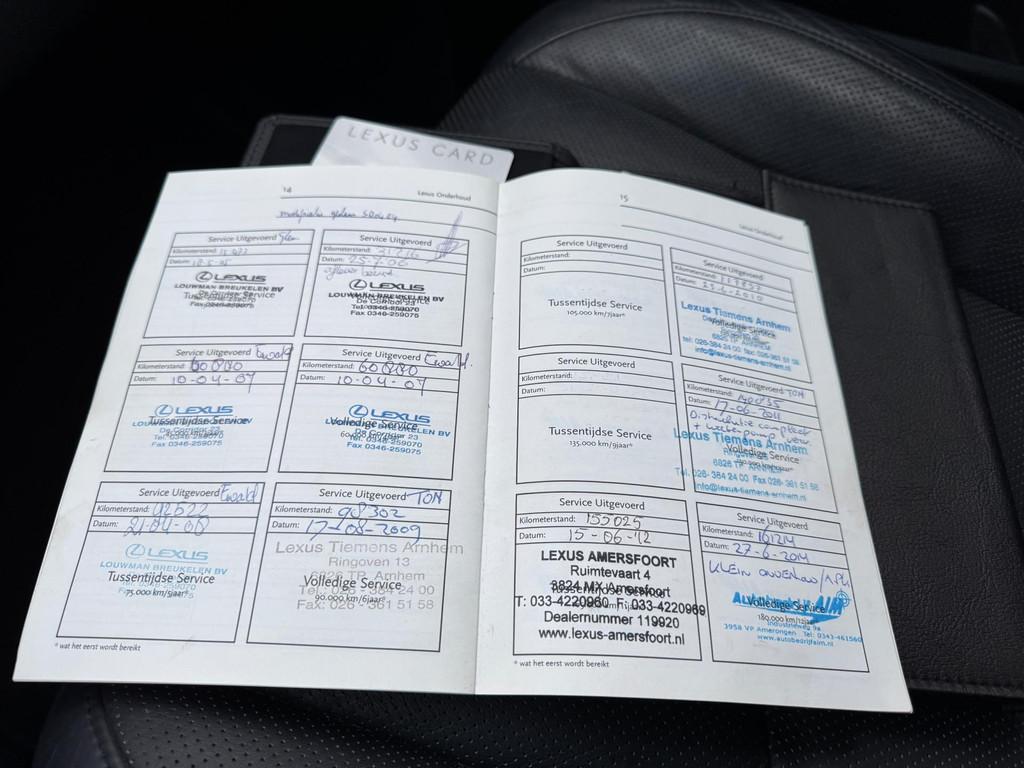 LEXUS CARD
14
Lexus Onderhoud
Service Uitgevoerd
Kilometerstand:
Datum:
LEXUS
LOUWMAN BREUKELEN BV
De Corridor 23
Tussentijdse Service
Tel. 0346-259070
Fax 0346-259075
Service Uitgevoerd
Kilometerstand:
Datum: 25-7-06
LEXUS
LOUWMAN BREUKELEN BV
De Corridor 23
Tel. 0346-259070
Fax 0346-259075
Service Uitgevoerd Ewald
Kilometerstand: 60880
Datum: 10-04-07
LEXUS
Tussentijdse Service
De Corridor 23
Tel. 0346-259070
Fax 0346-259075
Service Uitgevoerd Ewald.
Kilometerstand: 60880
Datum: 10-04-07
LEXUS
LOUWMAN BREUKELEN BV
Volledige Service
De Corridor 23
Tel. 0346-259070
Fax 0346-259075
Service Uitgevoerd Ewald
Kilometerstand:
Datum: 21-04-08
LEXUS
LOUWMAN BREUKELEN BV
Tussentijdse Service
75.000 km/5jaar*
Fax 0346-259075
Service Uitgevoerd TON
Kilometerstand: 98302
Datum: 17-08-2009
Lexus Tiemens Arnhem
Ringoven 13
6826 TP Arnhem
Volledige Service
Tel.: 026 - 384 24 00
90.000 km/6jaar*
Fax: 026 - 361 51 58
* wat het eerst wordt bereikt
15
Lexus Onderhoud
Service Uitgevoerd
Kilometerstand:
Datum:
Tussentijdse Service
105.000 km/7jaar*
Service Uitgevoerd
Kilometerstand:
Datum: 25-6-2010
Lexus Tiemens Arnhem
Volledige Service
6826 TP Arnhem
tel: 026-384 24 00 fax 026-361 51 58
info@lexus-tiemens-arnhem.nl
Service Uitgevoerd
Kilometerstand:
Datum:
Tussentijdse Service
135.000 km/9jaar*
Service Uitgevoerd TON
Kilometerstand:
Datum: 17-06-2011
Distributie compleet
+ waterpomp verv
Lexus Tiemens Arnhem
Ringoven
Volledige Service
6826 TP
Tel. 026- 384 24 00 Fax 026- 361 51 58
info@lexus-tiemens-arnhem.nl
Service Uitgevoerd
Kilometerstand: 155025
Datum: 15-06-'12
LEXUS AMERSFOORT
Ruimtevaart 4
3824 MX Amersfoort
Tussentijdse Service
T: 033-4220960 F: 033-4220969
Dealernummer 119920
www.lexus-amersfoort.nl
Service Uitgevoerd
Kilometerstand: 161214
Datum: 27-6-2014
KLEIN ONDERHOUD/APK
AIM
Volledige Service
Industrieweg 9a
180.000 km/12jaar*
3958 VP Amerongen Tel: 0343-461560
www.autobedrijfaim.nl
* wat het eerst wordt bereikt